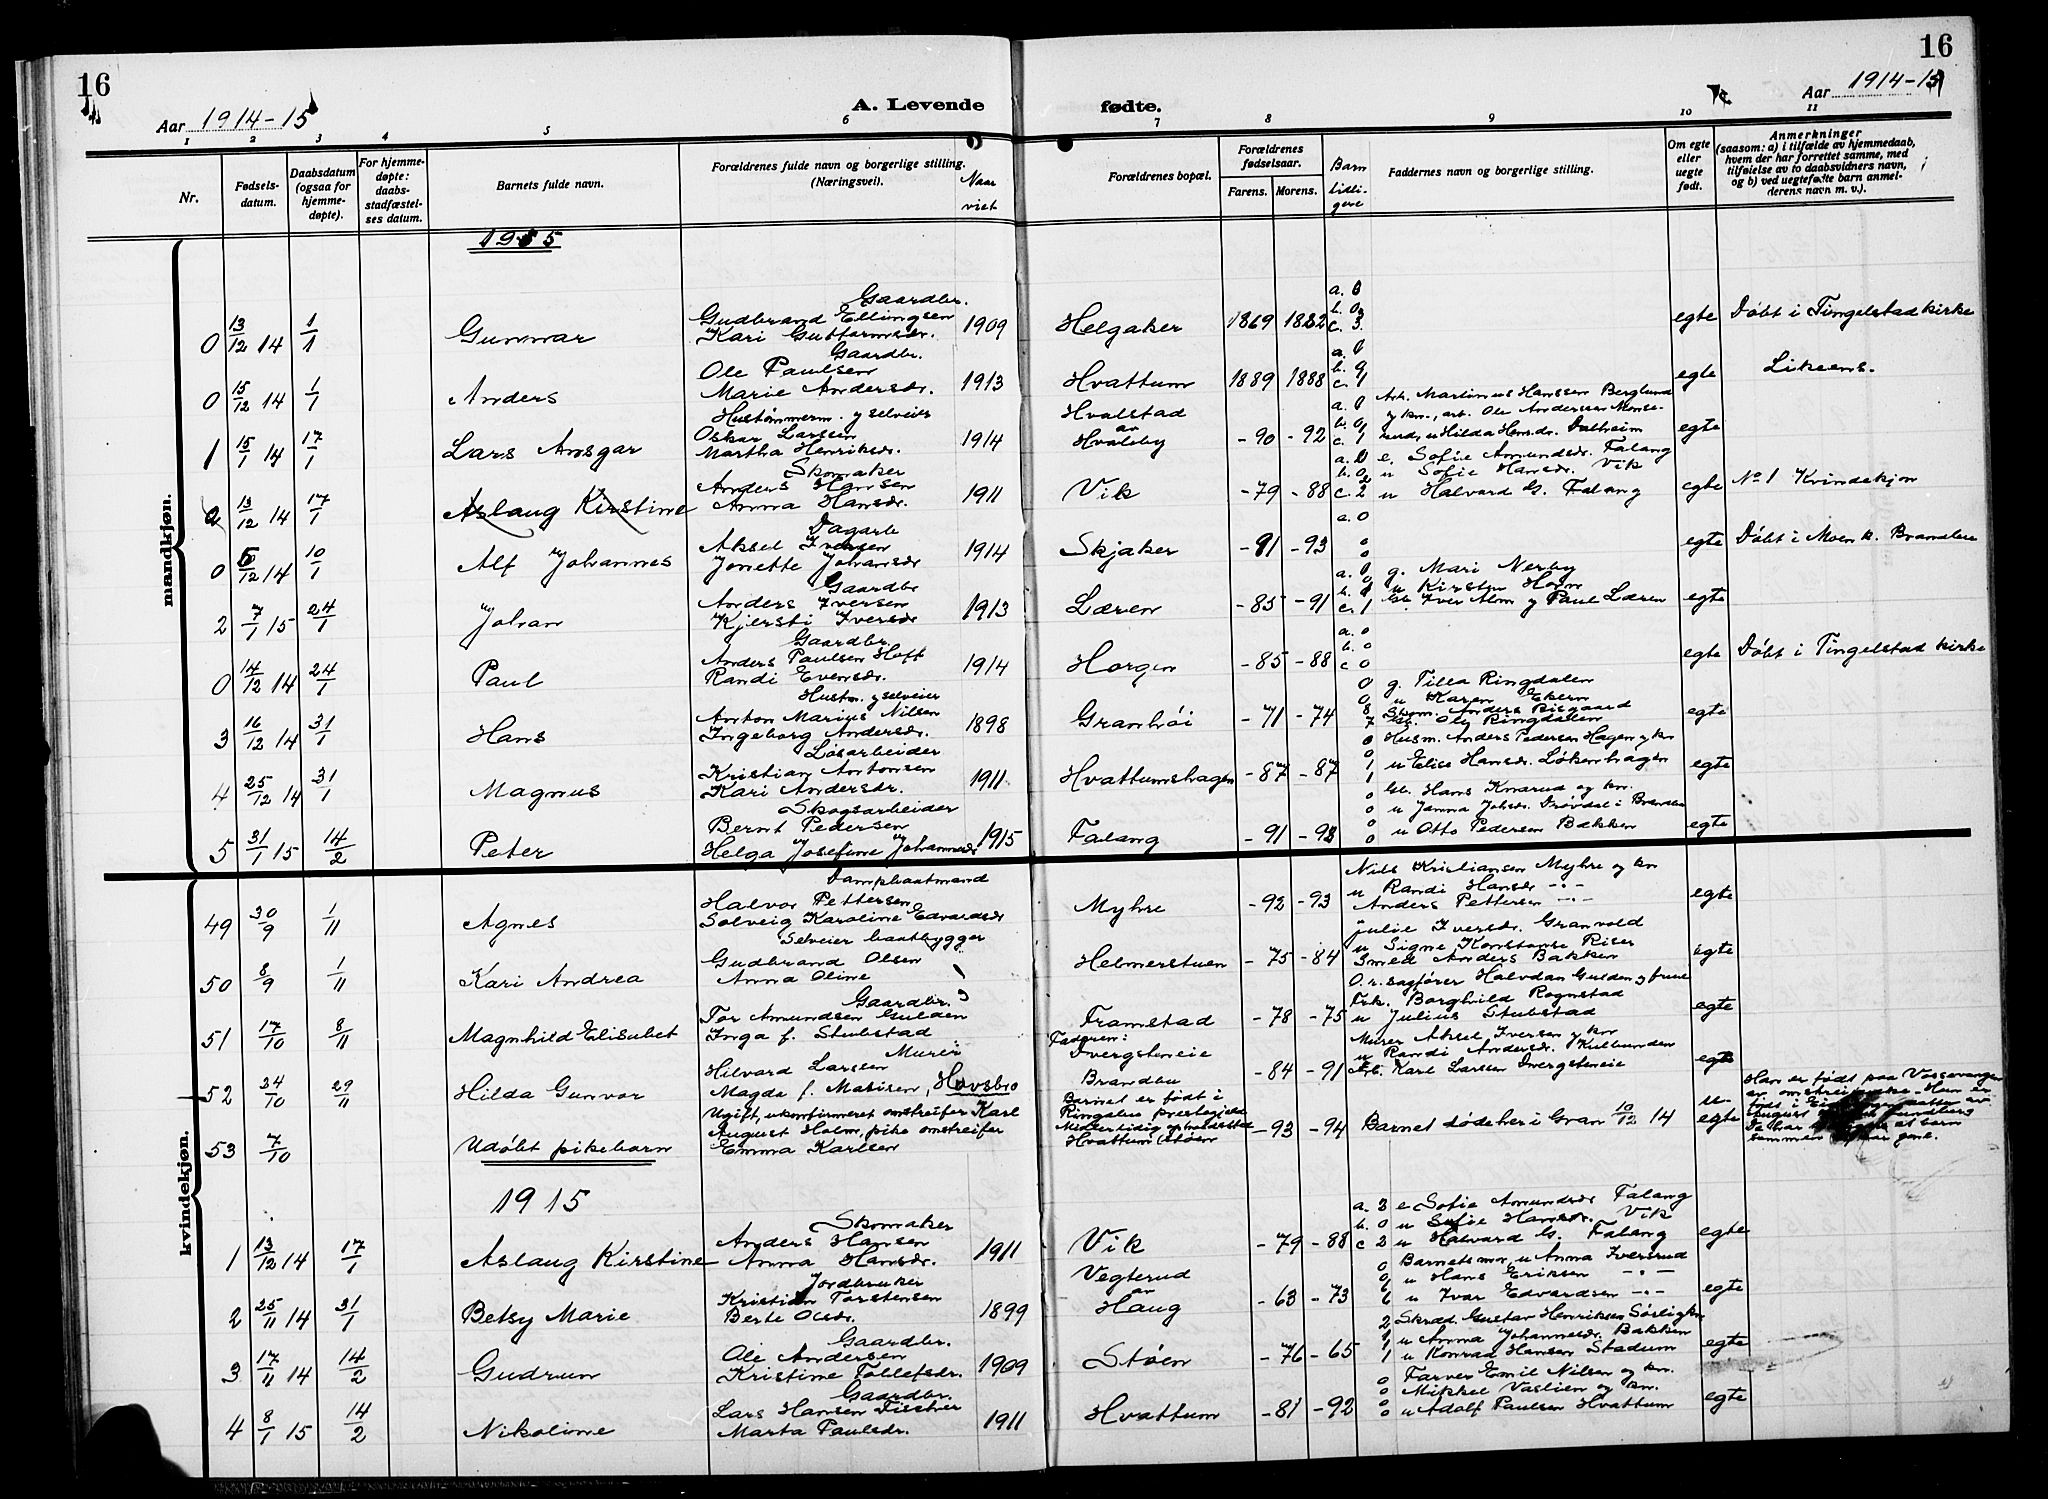 16
16
Aar 1914-15
A. Levende
fødte.
Aar 1914-15
1 2 3 4 5 6 7 8 9 10 11
Nr.
Fødsels-
datum.
Daabsdatum
(ogsaa for
hjemme-
døpte).
For hjemme-
døpte:
daabs-
stadfæstel-
ses datum.
Barnets fulde navn.
Forældrenes fulde navn og borgerlige stilling.
(Næringsvei).
Naar
viet
Forældrenes bopæl.
Forældrenes
fødselsaar.
Farens. Morens.
Barn
tidli-
gere
Faddernes navn og borgerlige stilling.
Om egte
eller
uegte
født.
Anmerkninger
(saasom: a) i tilfælde av hjemmedaab,
hvem der har forrettet samme, med
tilføielse av to daabsvidners navn,
og b) ved uegtefødte barn anmel-
derens navn m. v.).
mandkjøn.
1915
Gaardbr.
0 13/12 14 1/1 Gunnar Gudbrand Ellingsen
Kari Guttormsdr. 1909 Helgaker 1869 1882 a. 0 c. 3. egte Døbt i Tingelstad kirke
Gaardbr.
0 15/12 14 1/1 Anders Ole Paulsen
Marie Andersdr. 1913 Hvattum 1889 1888 a. 0 c. 1 egte Likeens.
Hustømmerm. y selveier
1 15/1 14 17/1 Lars Ansgar Oskar Larsen
Martha Henriksdr. 1914 Hvalstad
av
Hvaleby -90 -92 a. 0 c. 1 Arb. Martinius Hanssen Berglund
y kn., art. Ole Anderssen Mense-
rud, u Hilda Hansdr. Dalheim egte
Skomaker
2 13/12 14 17/1 Aslaug Kirstine Anders Hansen
Anna Hansdr. 1911 Vik -79 -88 c. 2 e. Sofie Amundsdr. Falang
u Sofie Hansdr. Vik
u Halvard G. Falang egte No 1 Kvindekjøn
Dagarb
0 6/12 14 10/1 Alf Johannes Aksel Iversen
Jonette Johansdr 1914 Skjaker -91 -93 a. 0 0 0 egte Døbt i Moen k. Brandbu
Gaardbr
2 7/1 15 24/1 Johan Anders Iversen
Kjersti Iversdr 1913 Læren -85 -91 c. 1 g. Mari Nerby
u Kirsten Horn
Gb. Iver Alm y Paul Læren egte
Gaardbr.
0 14/12 14 24/1 Paul Anders Paulsen Hoff
Randi Evensdr. 1914 Horgen -85 -88 a. 0 b. 0 c 0 egte Døbt i Tingelstad kirke
Hustm. y selveier
3 16/12 14 31/1 Hans Anton Marius Nilsen
Ingeborg Andersdr. 1898 Granhøi -71 -74 0 0 8 7 g. Tilla Ringdalen
u Karen Ekern
Skom. Anders Risgaard
Gb. Ole Ringdalen egte
Løsarbeider
4 25/12 14 31/1 Magnus Kristian Antonsen
Kari Andersdr. 1911 Hvattumshagen -87 -87 0 0 1 1 Husm. Anders Pedersen Hagen y kn
u Elise Hansdr. Løkenhagen egte
Skogsarbeider
5 31/1 15 14/2 Peter Bernt Pedersen
Helga Josefine Johannesdr 1915 Falang -91 -93 0 0 0 0 Gb. Hans Knarud og kn.
u Janna Johsdr. Drøvdal i Brandbu
u Otto Pedersen Bækken egte
kvindekjøn.
Dampbaatmand
49 30/9 1/11 Agnes Halvor Pettersen
Solveig Karoline Edvardsdr Myhre -92 -93 Nils Kristiansen Myhre og kn
u Randi Hansdr -"-
Anders Pettersen -"- egte
Selveier baatbygger
50 8/9 1/11 Kari Andrea Gudbrand Olsen
Anna Oline Helmerstuen -75 -84 Julie Iversdr. Granvold
u Signe Konstanse Riser
Smed Anders Bakken egte
Gaardbr.
51 17/10 8/11 Magnhild Elisabet Tor Amundsen Gulden
Inga f. Stubstad Framstad -78 -75 O.r.sagfører Halvdan Gulden y frue
Frk. Borghild Rognstad
u Julius Stubstad egte
Murer
52 24/10 29/11 Hilda Gunvor Hilvard Larsen
Magda f. Matisen, Hovsbro Faderen:
Dvergsteneie
Brandbu -84 -91 Murer Aksel Iversen y kn
u Randi Andersdr. Kulbunden
Arb. Karl Larsen Dvergsteneie egte
53 7/10 Udøbt pikebarn Ugift, ukonfirmeret omstreifer Karl
August Holm, pike omstreifer
Emma Karlsen Barnet er født i
Ringebu prestegjeld
Midlertidig opholdssted
Hvattum Støen -93 -94 Barnet døde her i Gran 10/12 14 u-
egte Han er født paa Vossevangen
av omstreifende. Hun er
1915
Skomaker
1 13/12 14 17/1 Aslaug Kirstine Anders Hansen
Anna Hansdr. 1911 Vik -79 -88 a. 3 b. 0 c 2 e Sofie Amundsdr Falang
u Sofie Hansdr. Vik
u Halvard G. Falang egte
Jordbruker
2 25/11 14 31/1 Betsy Marie Kristian Torstensen
Berte Olsdr. 1899 Vegterud
av
Haug -63 -73 0 0 6 Barnets mor, u Anna Iversrud
u Hans Eriksen -"-
u Ivar Edvardsen -"- egte
Gaardbr.
3 17/11 14 14/2 Gudrun Ole Andersen
Kristine Tollefsdr. 1909 Støen -76 -65 2 1 1 Skræd. Gustav Henriksen Sørligkn
u Anna Johannesdr. Bakken
u Konrad Hansen Stadum egte
Gaardbr.
4 8/1 15 14/2 Nikoline Lars Hansen Tischer
Marta Paulsdr. 1911 Hvattum -81 -92 0 0 0 Farver Emil Nilsen og kn.
Mikkel Vaslien og kn.
u Adolf Paulsen Hvattum egte